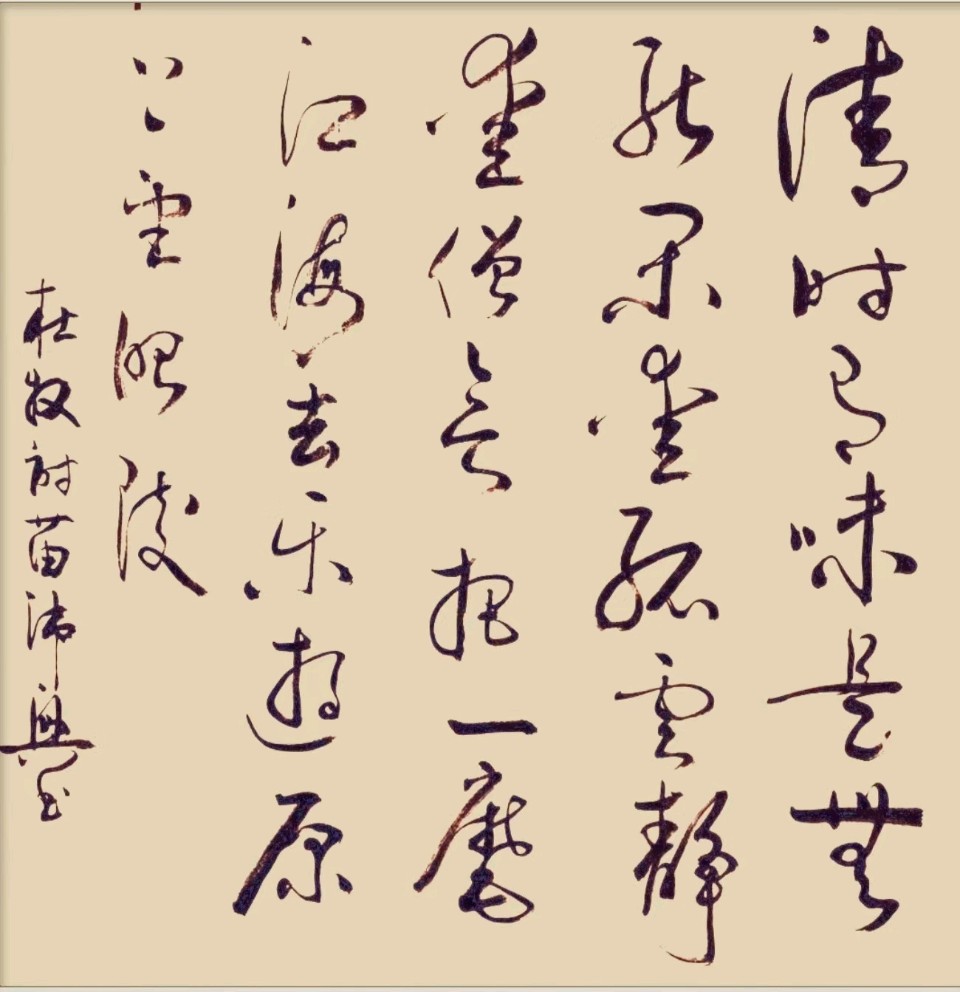 清时有味是無
能闲爱孤雲静
爱僧欲把一麾
江海去乐遊原
上望昭陵
杜牧詩苗沛興